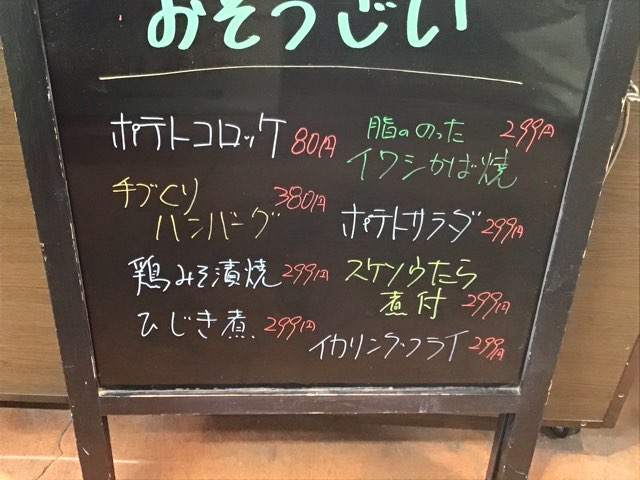 おそうざい
ポテトコロッケ 80円
手づくり 380円
ハンバーグ
鶏みそ漬焼 299円
ひじき煮 299円
脂ののった 299円
イワシかば焼
ポテトサラダ 299円
スケソウたら
煮付 299円
イカリングフライ 299円